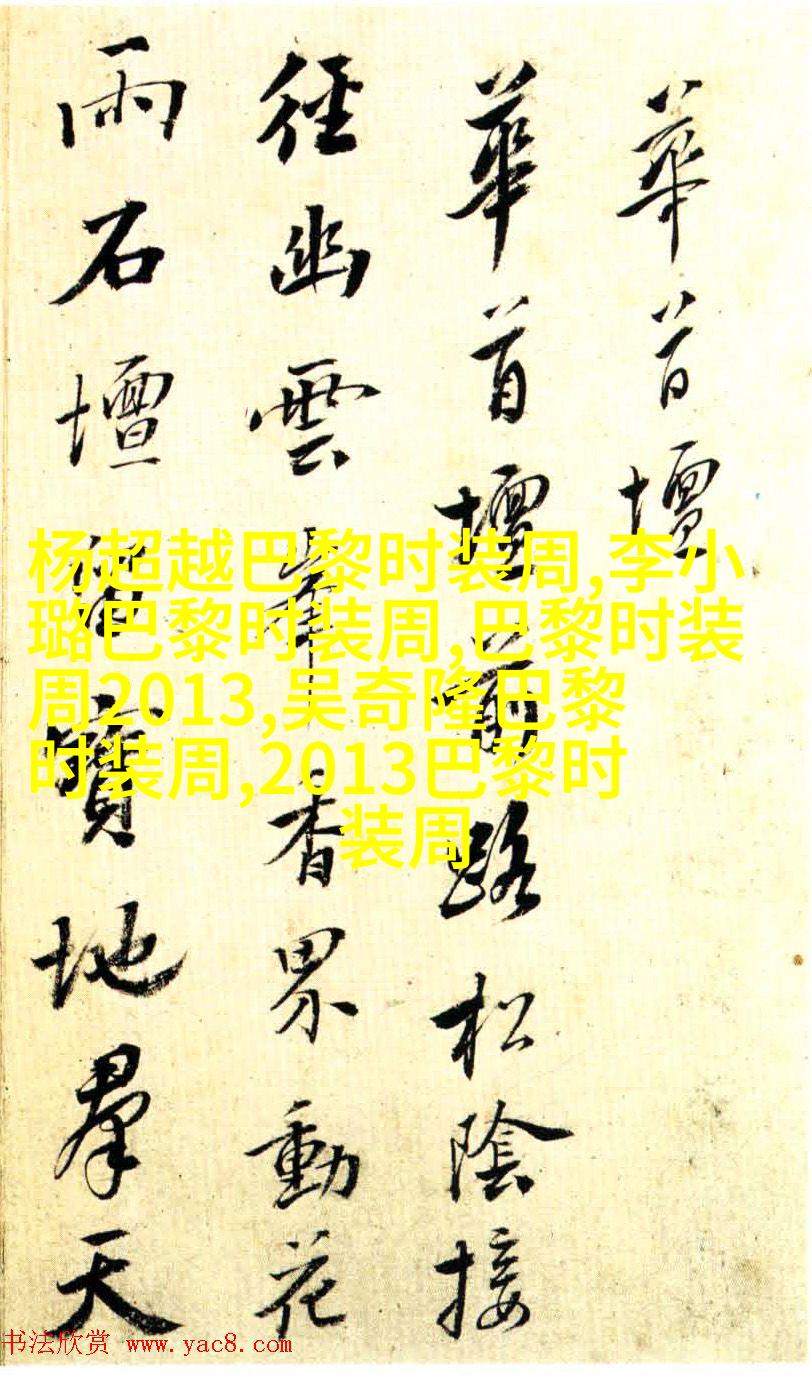 華首壇
華首壇前路松陰接
徑幽雲峯香界動花
雨石壇寶地羣天
杨超越巴黎时装周,李小
璐巴黎时装周,巴黎时装
周2013,吴奇隆巴黎
时装周,2013巴黎时
装周
书法欣赏 www.yac8.com